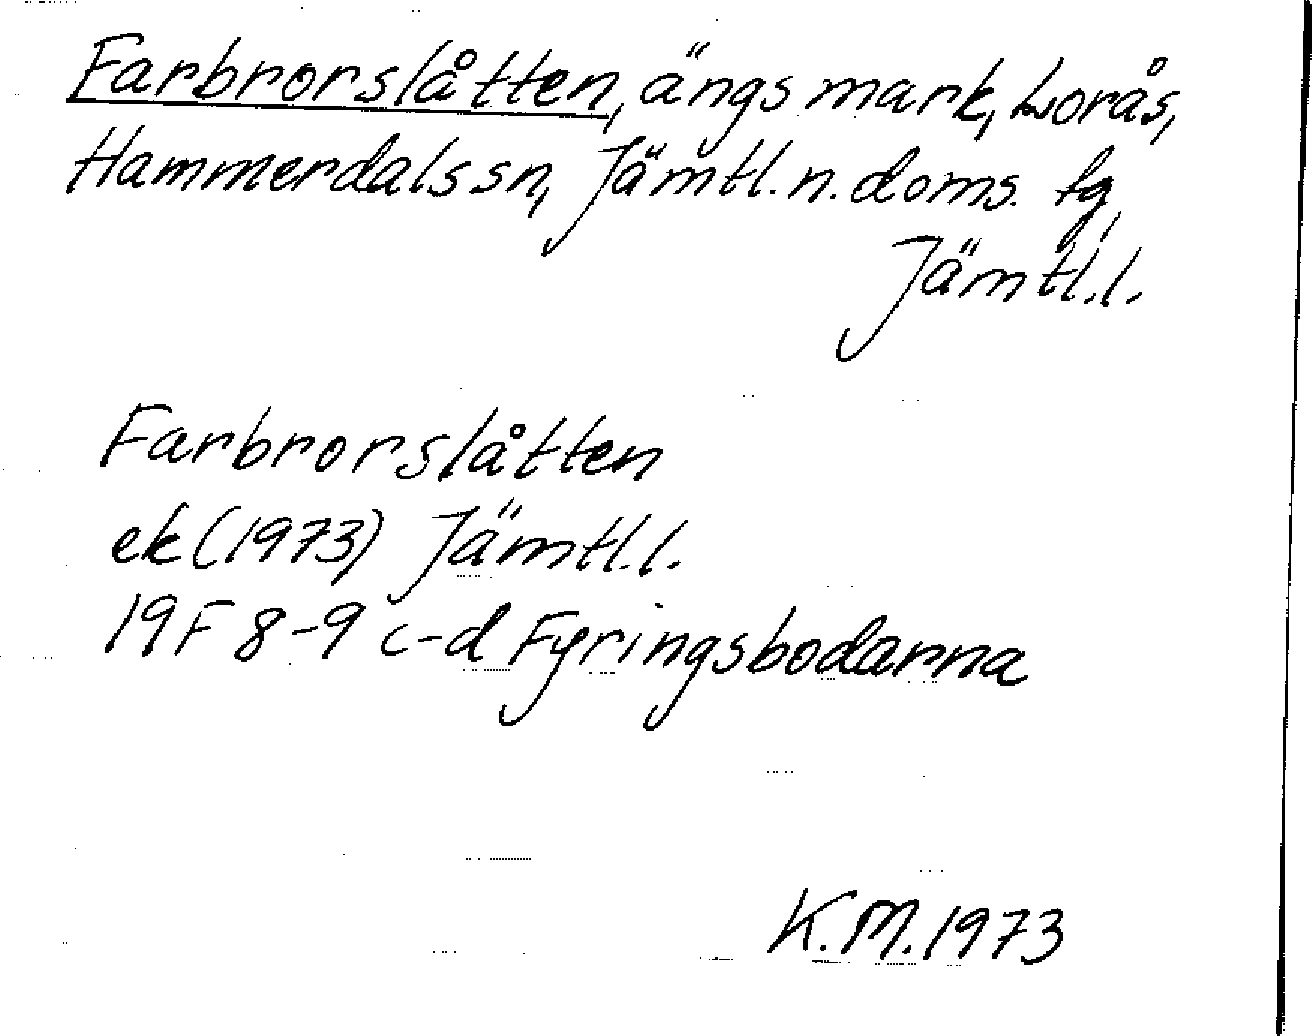 Farbrorslåtten, ängsmark, Lorås,
Hammerdals sn, Jämtl. n. doms. tg,
Jämtl. l.
Farbrorslåtten
ek (1973) Jämtl. l.
19F 8-9 c-d Fyringsbodarna
K.M. 1973